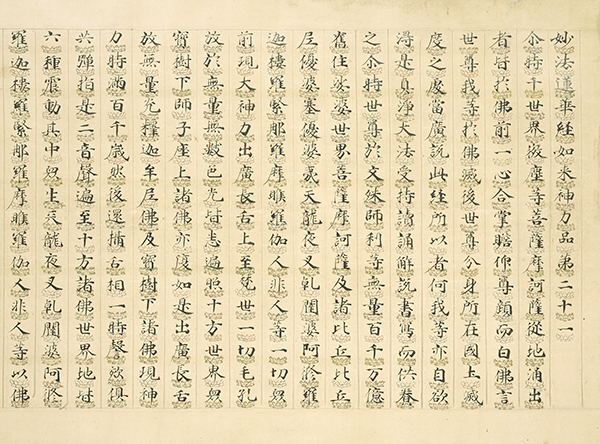 妙法蓮華經如來神力品第二十一
尒時千世界微塵等菩薩摩訶薩從地涌出
者皆於佛前一心合掌瞻仰尊顏而白佛言
世尊我等於佛滅後世尊分身所在國土滅
度之處當廣說此經所以者何我等亦自欲
得是真淨大法受持讀誦解說書寫而供養
之尒時世尊於文殊師利等無量百千万億
舊住娑婆世界菩薩摩訶薩及諸比丘比丘
尼優婆塞優婆夷天龍夜叉乹闥婆阿脩羅
迦樓羅緊那羅摩睺羅伽人非人等一切
前現大神力出廣長舌上至梵世一切毛孔
放於無量無數色光皆悉遍照十方世界衆
寶樹下師子座上諸佛亦復如是出廣長舌
放無量光釋迦牟尼佛及寶樹下諸佛現神
力時滿百千歲然後還攝舌相一時謦欬俱
共彈指是二音聲遍至十方諸佛世界地皆
六種震動其中衆生天龍夜叉乹闥婆阿脩
羅迦樓羅緊那羅摩睺羅伽人非人等以佛